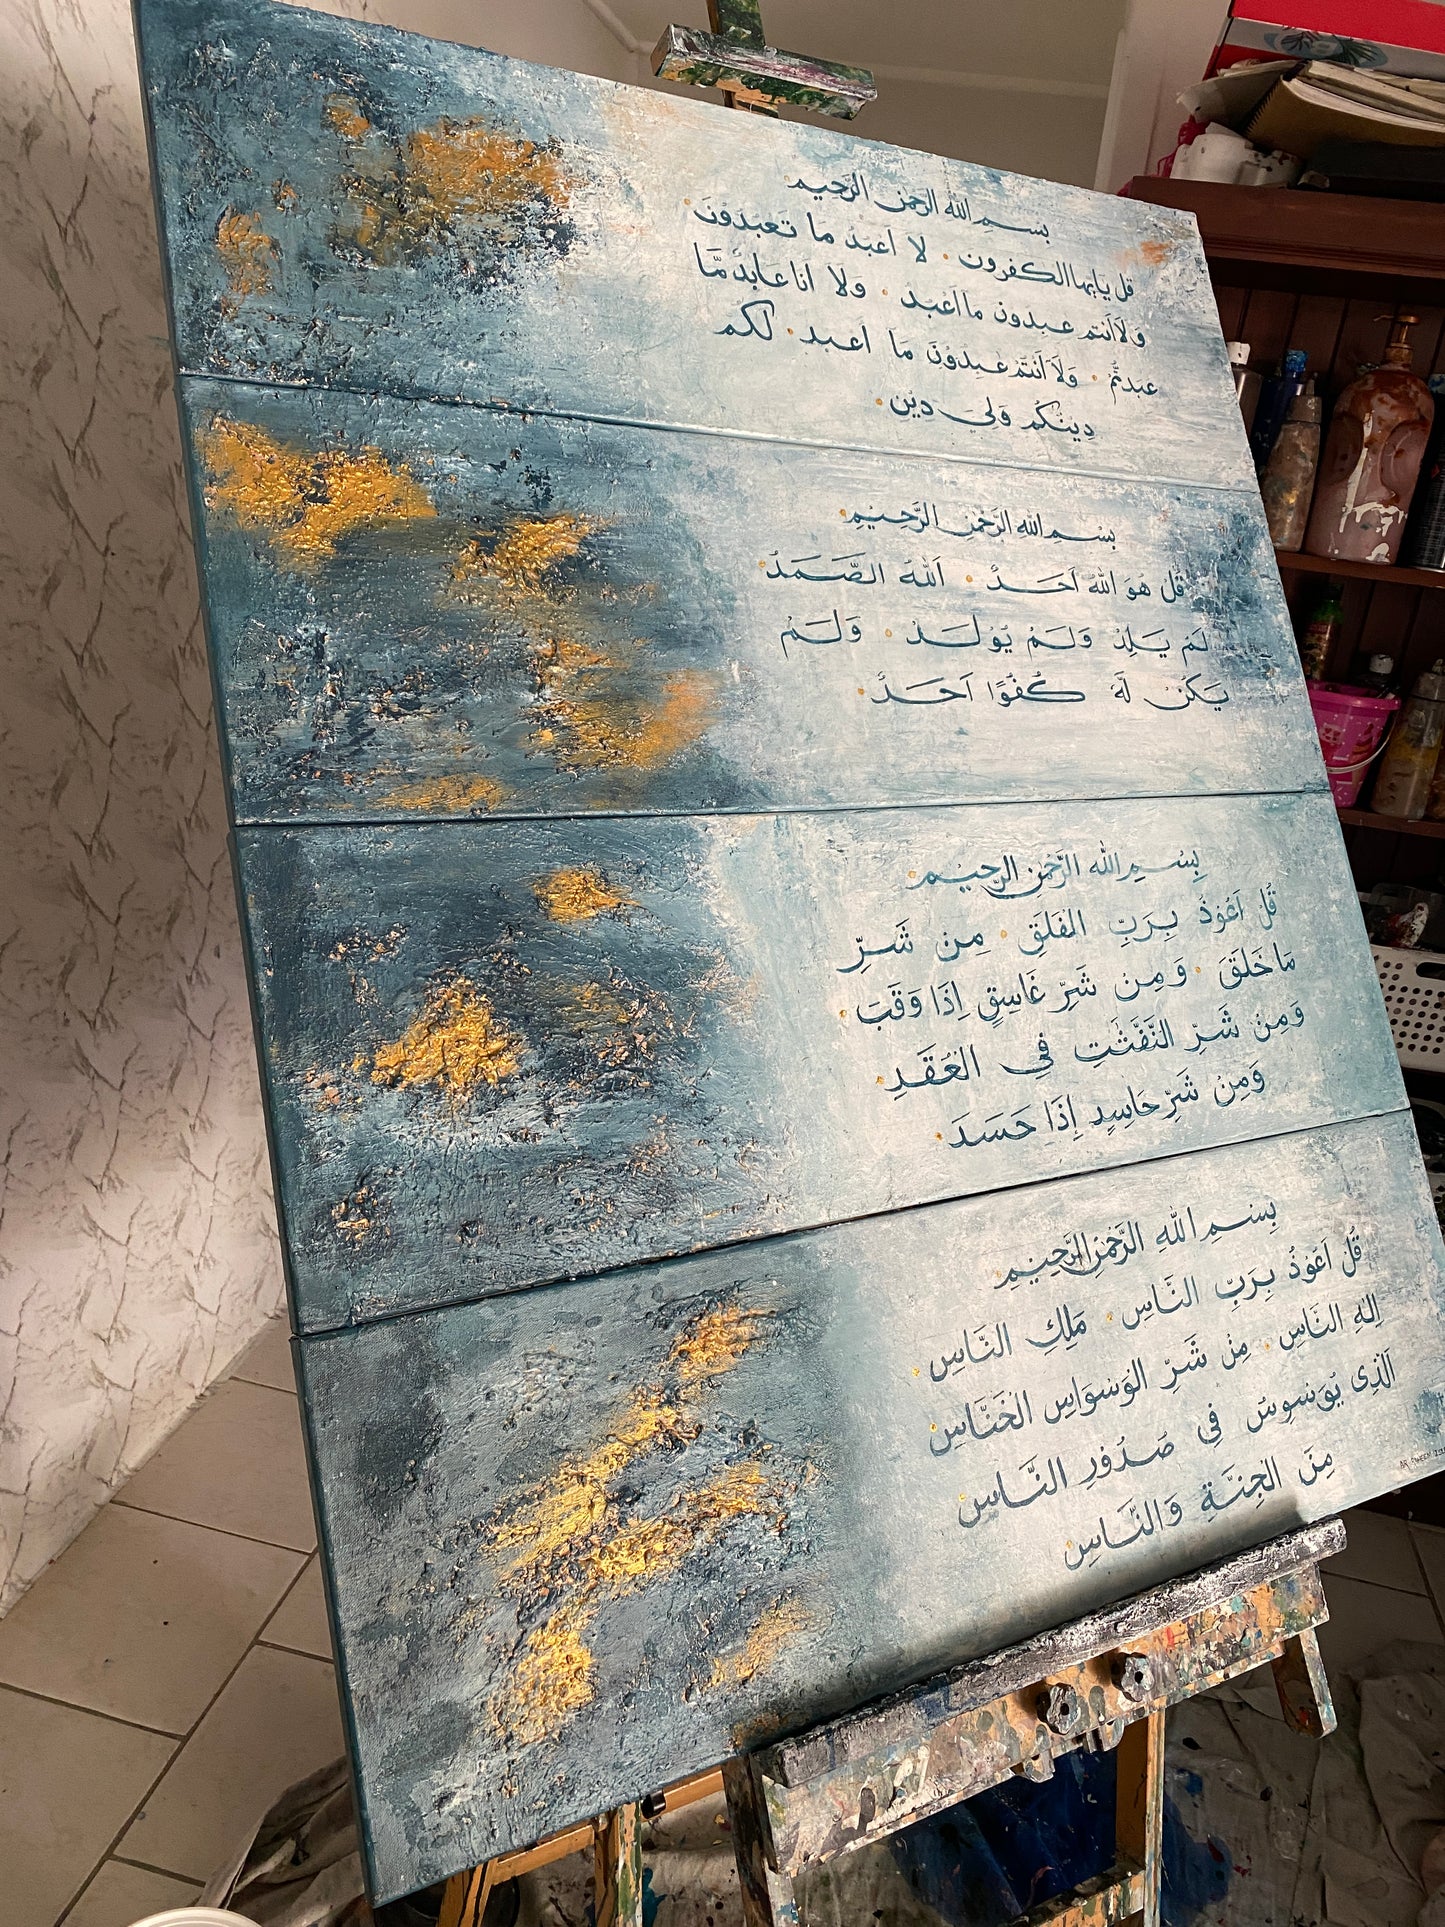 بسم الله الرحمن الرحيم
قل يايها الكفرون . لا اعبد ما تعبدون .
ولا انتم عبدون ما اعبد . ولا انا عابد ما
عبدتم . ولا انتم عبدون ما اعبد . لكم
دينكم ولي دين .
بِسْمِ اللهِ الرَّحْمٰنِ الرَّحِيْمِ .
قُلْ هُوَ اللهُ اَحَدٌ . اَللهُ الصَّمَدُ .
لَمْ يَلِدْ وَلَمْ يُوْلَدْ . وَلَمْ
يَكُنْ لَّهٗ كُفُوًا اَحَدٌ .
بِسْمِ اللهِ الرَّحْمٰنِ الرَّحِيْمِ .
قُلْ اَعُوْذُ بِرَبِّ الْفَلَقِ . مِنْ شَرِّ
مَا خَلَقَ . وَمِنْ شَرِّ غَاسِقٍ اِذَا وَقَبَ .
وَمِنْ شَرِّ النَّفّٰثٰتِ فِى الْعُقَدِ .
وَمِنْ شَرِّ حَاسِدٍ اِذَا حَسَدَ .
بِسْمِ اللهِ الرَّحْمٰنِ الرَّحِيْمِ
قُلْ اَعُوْذُ بِرَبِّ النَّاسِ . مَلِكِ النَّاسِ .
اِلٰهِ النَّاسِ . مِنْ شَرِّ الْوَسْوَاسِ الْخَنَّاسِ .
الَّذِى يُوَسْوِسُ فِى صُدُوْرِ النَّاسِ .
مِنَ الْجِنَّةِ وَالنَّاسِ .